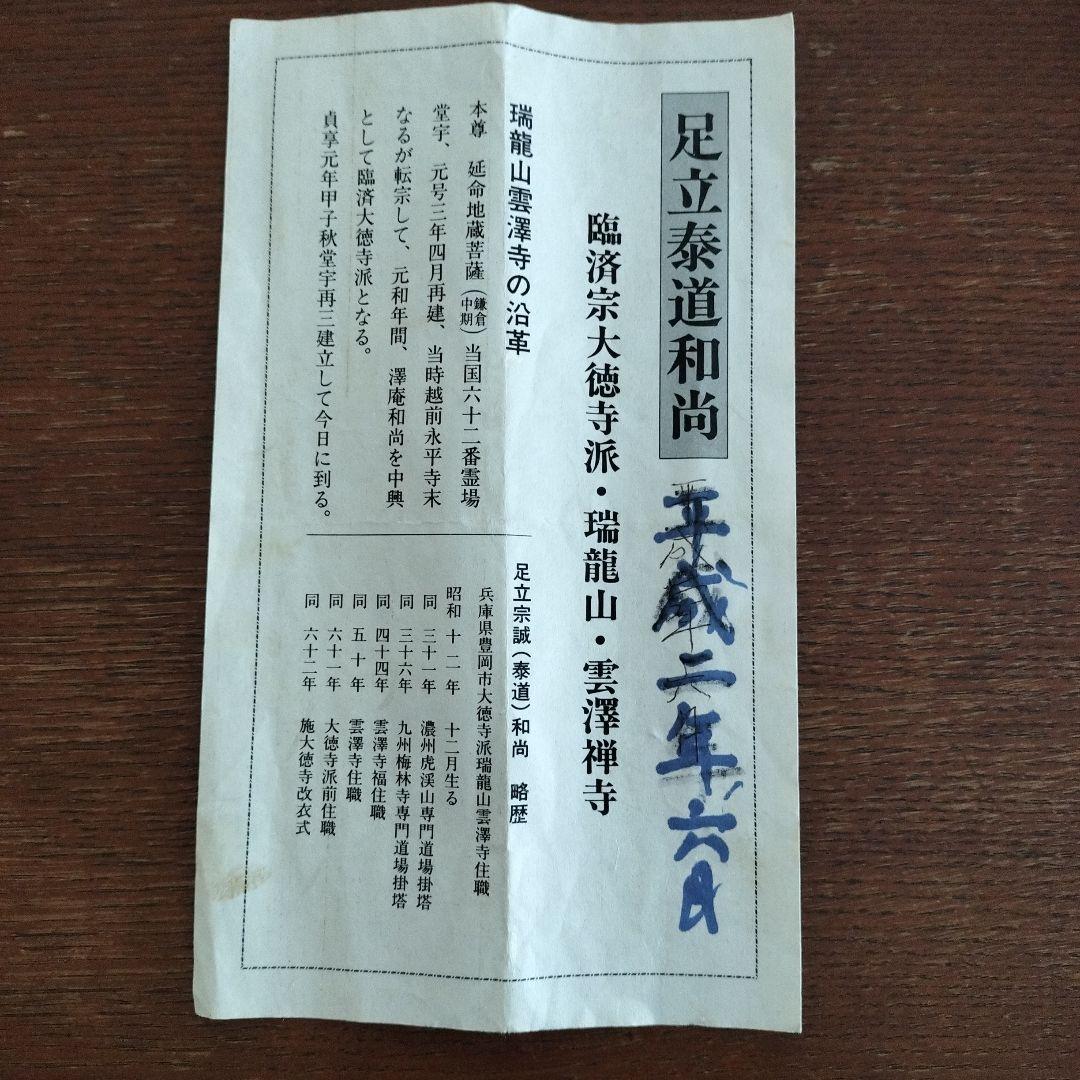 足立泰道和尚
平成二年六月
臨済宗大徳寺派・瑞龍山・雲澤禅寺
瑞龍山雲澤寺の沿革
本尊　延命地蔵菩薩（鎌倉中期）当国六十二番霊場
堂宇、元号三年四月再建、当時越前永平寺末
なるが転宗して、元和年間、澤庵和尚を中興
として臨済大徳寺派となる。
貞享元年甲子秋堂宇再三建立して今日に到る。
足立宗誠（泰道）和尚　略歴
兵庫県豊岡市大徳寺派瑞龍山雲澤寺住職
昭和　十二年　十二月生る
同　三十一年　濃州虎渓山専門道場掛塔
同　三十六年　九州梅林寺専門道場掛塔
同　四十四年　雲澤寺福住職
同　五十年　雲澤寺住職
同　六十一年　大徳寺派前住職
同　六十二年　施大徳寺改衣式